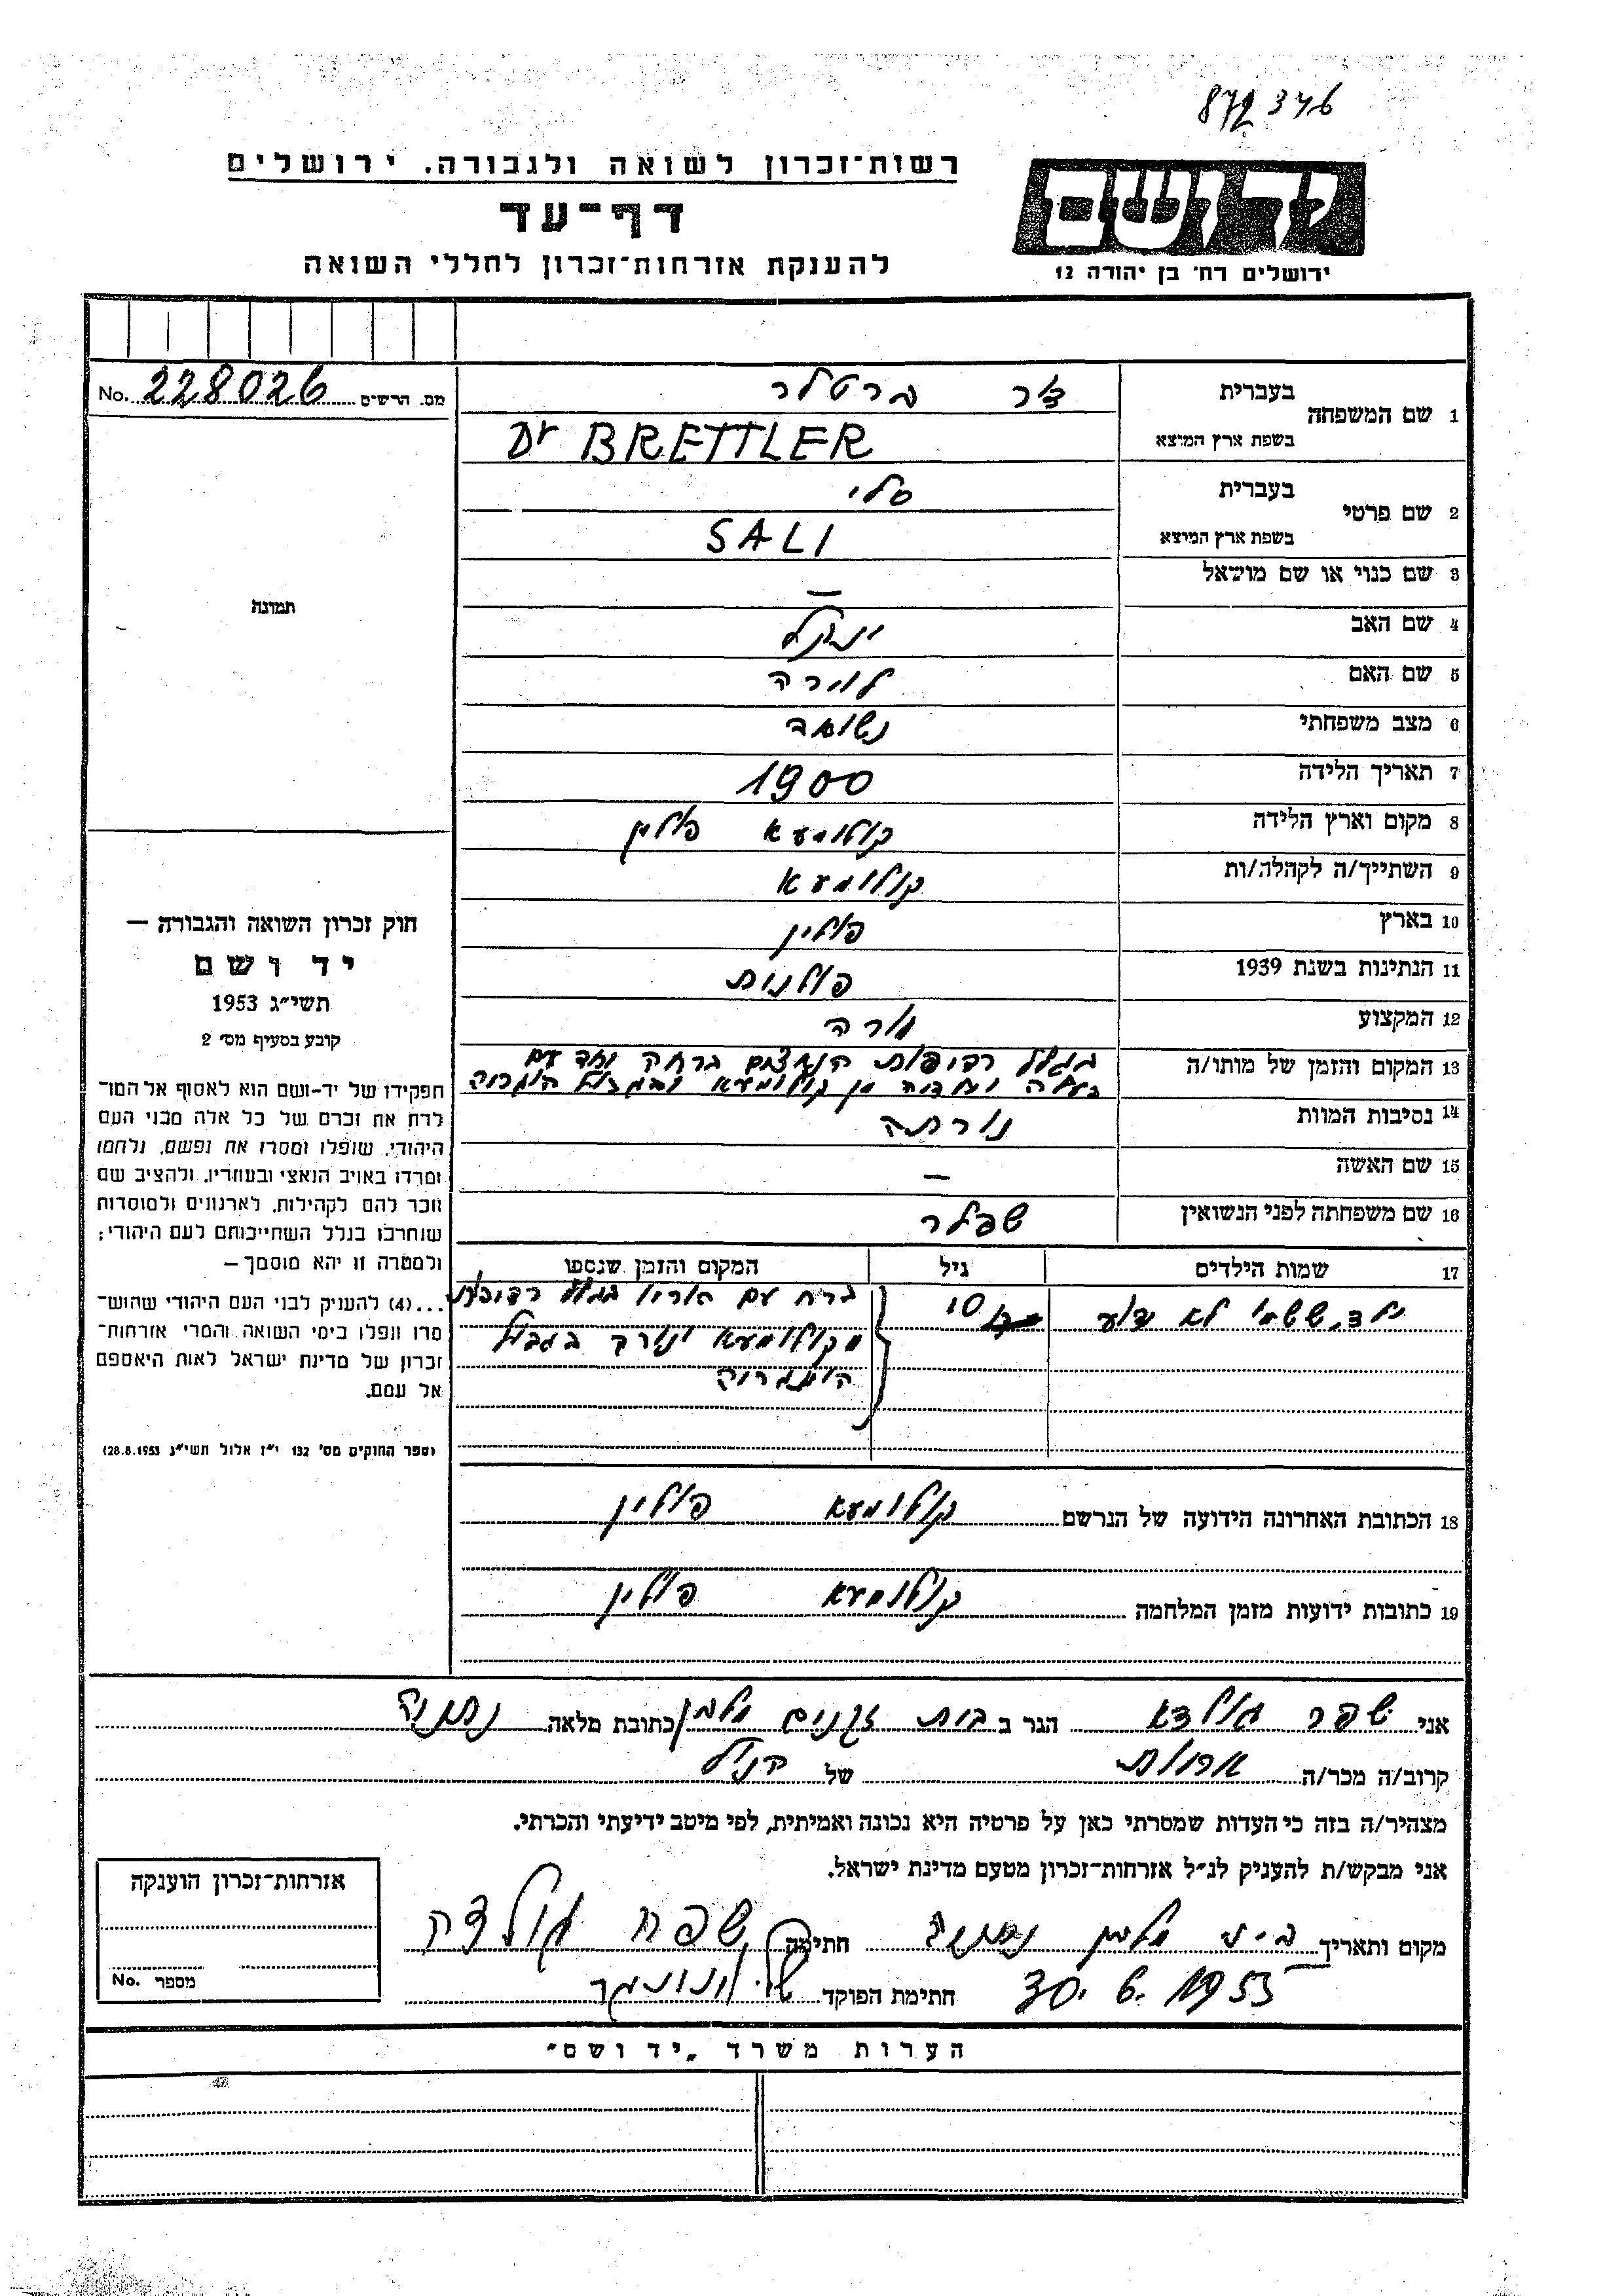 872376
רשות־זכרון לשואה ולגבורה. ירושלים
יד ושם
דף־עד
להענקת אזרחות־זכרון לחללי השואה
ירושלים רח׳ בן יהודה 12
מס. הרשים No. 228026
1 שם המשפחה
בעברית דר ברטלר
בשפת ארץ המוצא Dr BRETTLER
2 שם פרטי
בעברית סלי
בשפת ארץ המיצא SALI
3 שם כנוי או שם מושאל —
4 שם האב ינקל
5 שם האם לורה
6 מצב משפחתי נשואה
7 תאריך הלידה 1900
8 מקום וארץ הלידה קולומעא פולין
9 השתייך/ה לקהלה/ות קולומעא
10 בארץ פולין
11 הנתינות בשנת 1939 פולנית
12 המקצוע מורה
13 המקום והזמן של מותו/ה בגלל רדיפות הנאצים ברחה יחד עם
בעלה מן קולומעא ובגבול הונגריה
14 נסיבות המוות נורתה
15 שם האשה —
16 שם משפחתה לפני הנשואין שפלר
17 שמות הילדים גיל המקום והזמן שנספו
ילד, ששמו לא ידוע 10 ברח עם הוריו בגלל רדיפות
מקולומעא ונורה בגבול
הונגריה
תמונה
חוק זכרון השואה והגבורה —
יד ושם
תשי״ג 1953
קובע בסעיף מס׳ 2
תפקידו של יד-ושם הוא לאסוף אל המו־
לדת את זכרם של כל אלה מבני העם
היהודי, שנפלו ומסרו את נפשם, נלחמו
ומרדו באויב הנאצי ובעוזריו, ולהציב שם
וזכר להם לקהילות, לארגונים ולמוסדות
שנחרבו בגלל השתייכותם לעם היהודי;
ולמטרה זו יהא מוסמך —
...(4) להעניק לבני העם היהודי שהוש־
מדו ונפלו בימי השואה והמרי אזרחות־
זכרון של מדינת ישראל לאות היאספם
אל עמם.
(ספר החוקים מס׳ 132 י״ז אלול תשי״ג 28.8.1953)
18 הכתובת האחרונה הידועה של הנרשם קולומעא פולין
19 כתובות ידועות מזמן המלחמה קולומעא פולין
אני שפר גולדא הגר ב בית זקנים מלבן כתובת מלאה נתניה
קרוב/ה מכר/ה אחות של הנ״ל
מצהיר/ה בזה כי העדות שמסרתי כאן על פרטיה היא נכונה ואמיתית, לפי מיטב ידיעתי והכרתי.
אני מבקש/ת להעניק לנ״ל אזרחות־זכרון מטעם מדינת ישראל.
מקום ותאריך מלבן נתניה חתימה שפר גולדה
30. 6. 1955 חתימת הפוקד
אזרחות־זכרון הוענקה
מספר No.
הערות משרד „יד ושם״